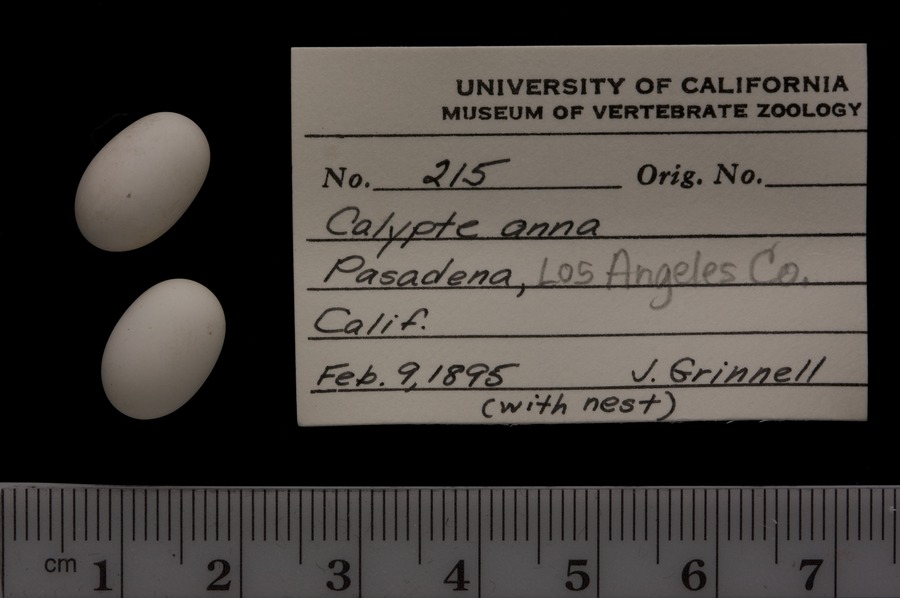 UNIVERSITY OF CALIFORNIA
MUSEUM OF VERTEBRATE ZOOLOGY
No. 215 Orig. No.
Calypte anna
Pasadena, Los Angeles Co.
Calif.
Feb. 9, 1895 J. Grinnell
(with nest)
cm 1 2 3 4 5 6 7